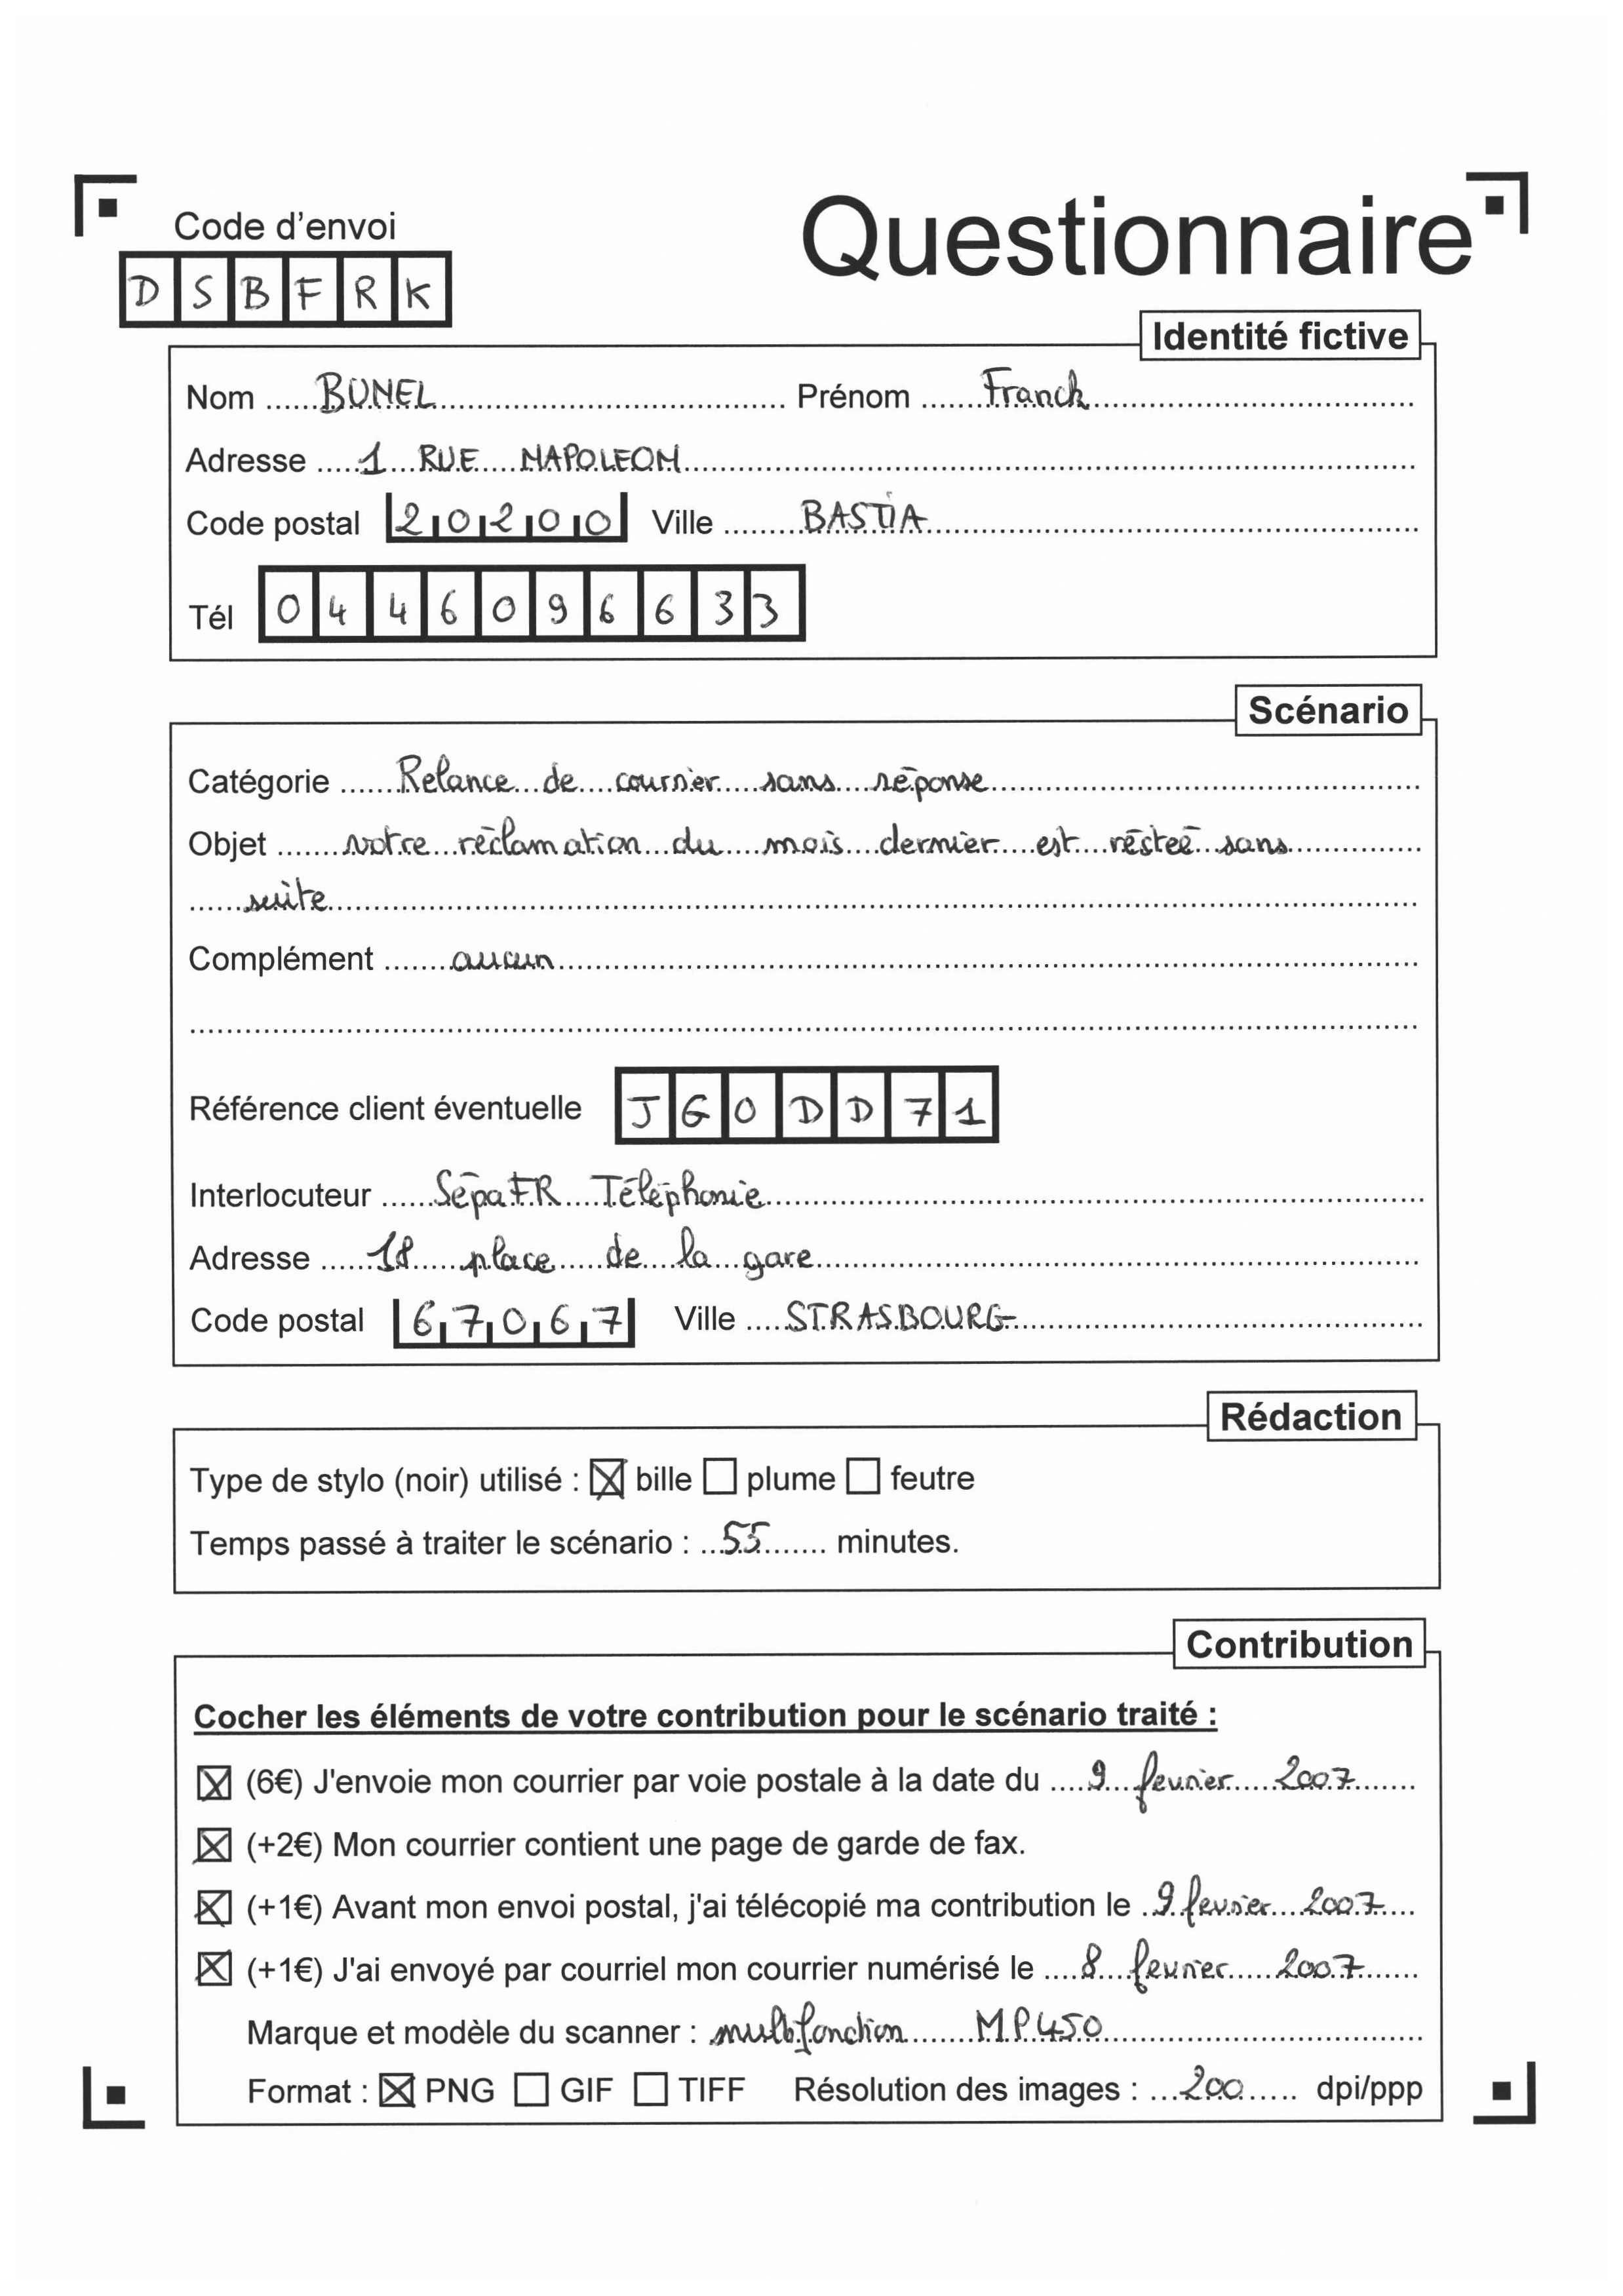 Code d'envoi
Questionnaire
D S B F R K
Identité fictive
Nom BUNEL Prénom Franck
Adresse 1 RUE NAPOLEON
Code postal 20200 Ville BASTIA
Tél 0446096633
Scénario
Catégorie Relance de courrier sans réponse
Objet votre réclamation du mois dernier est réstée sans
suite
Complément aucun
Référence client éventuelle JGODD71
Interlocuteur SépaFR Téléphonie
Adresse 18 place de la gare
Code postal 67067 Ville STRASBOURG
Rédaction
Type de stylo (noir) utilisé : ☒ bille ☐ plume ☐ feutre
Temps passé à traiter le scénario : 55 minutes.
Contribution
Cocher les éléments de votre contribution pour le scénario traité :
☒ (6€) J'envoie mon courrier par voie postale à la date du 9 fevrier 2007
☒ (+2€) Mon courrier contient une page de garde de fax.
☒ (+1€) Avant mon envoi postal, j'ai télécopié ma contribution le 9 fevrier 2007
☒ (+1€) J'ai envoyé par courriel mon courrier numérisé le 8 fevrier 2007
Marque et modèle du scanner : multifonction MP450
Format : ☒ PNG ☐ GIF ☐ TIFF Résolution des images : 200 dpi/ppp